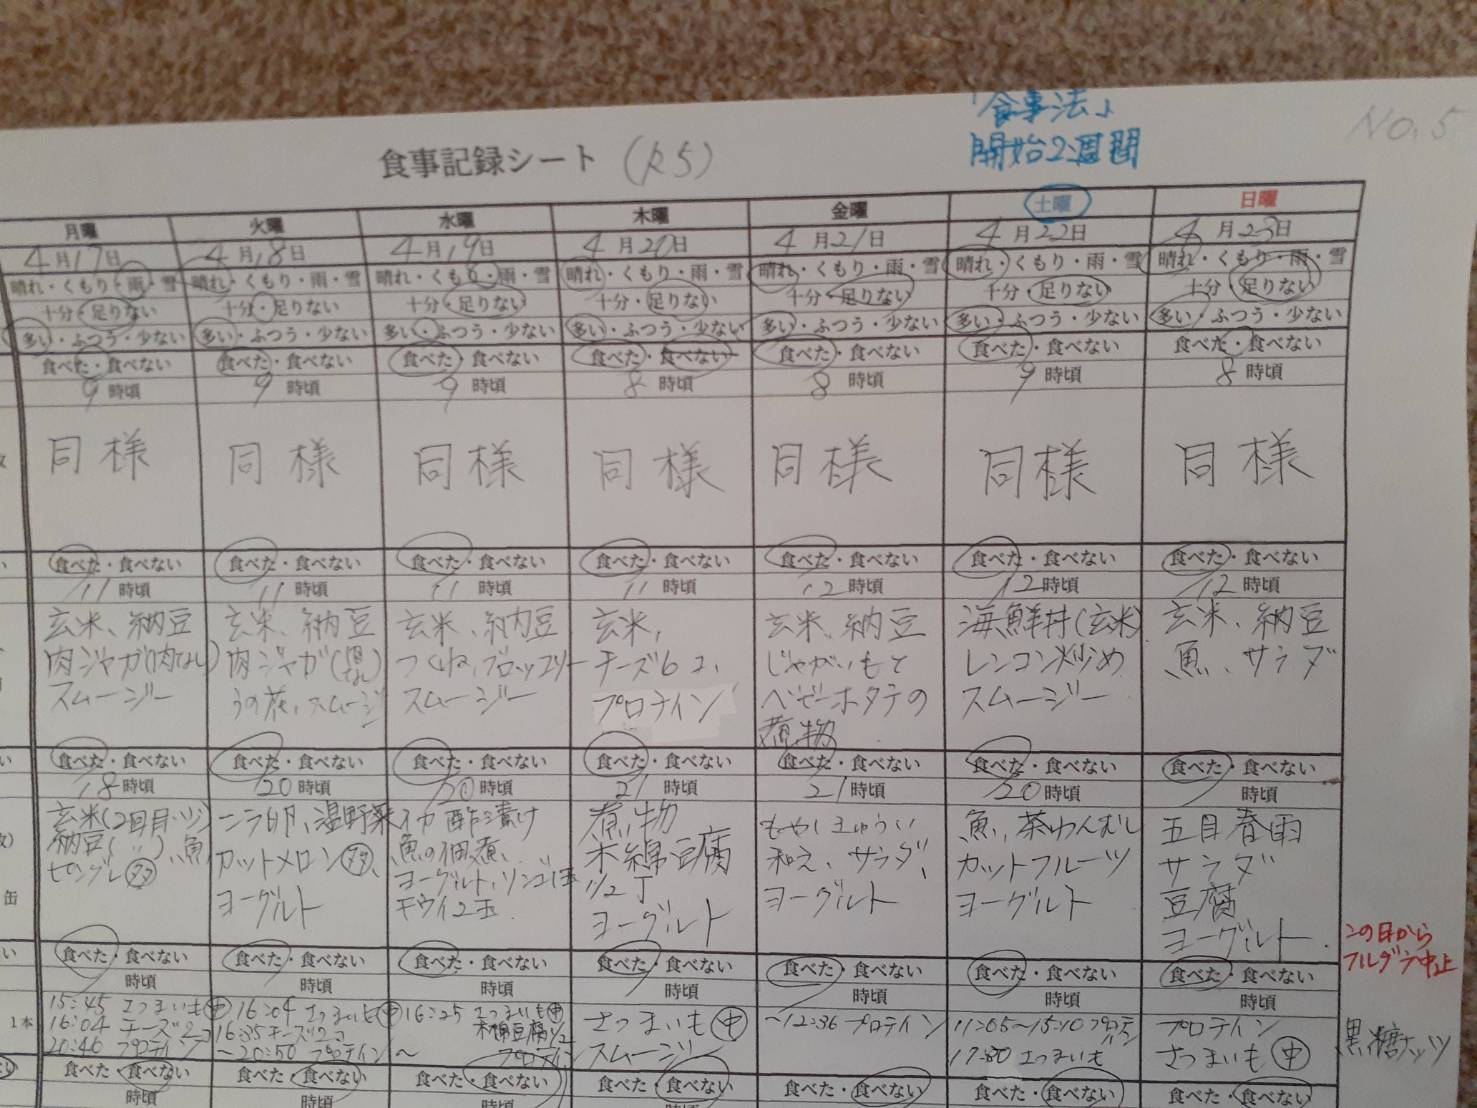 「食事法」
開始2週間
No.5
食事記録シート (R5)
月曜 火曜 水曜 木曜 金曜 土曜 日曜
4月17日 4月18日 4月19日 4月20日 4月21日 4月22日 4月23日
晴れ・くもり・雨・雪 晴れ・くもり・雨・雪 晴れ・くもり・雨・雪 晴れ・くもり・雨・雪 晴れ・くもり・雨・雪 晴れ・くもり・雨・雪 晴れ・くもり・雨・雪
十分・足りない 十分・足りない 十分・足りない 十分・足りない 十分・足りない 十分・足りない 十分・足りない
多い・ふつう・少ない 多い・ふつう・少ない 多い・ふつう・少ない 多い・ふつう・少ない 多い・ふつう・少ない 多い・ふつう・少ない 多い・ふつう・少ない
食べた・食べない 食べた・食べない 食べた・食べない 食べた・食べない 食べた・食べない 食べた・食べない 食べた・食べない
9時頃 9時頃 9時頃 8時頃 8時頃 9時頃 8時頃
同様 同様 同様 同様 同様 同様 同様
食べた・食べない 食べた・食べない 食べた・食べない 食べた・食べない 食べた・食べない 食べた・食べない 食べた・食べない
11時頃 11時頃 11時頃 11時頃 12時頃 12時頃 12時頃
玄米、納豆 玄米、納豆 玄米、納豆 玄米、 玄米、納豆 海鮮丼(玄米) 玄米、納豆
肉ジャガ(肉なし) 肉ジャガ( つくね、ブロッコリー チーズ6コ、 じゃがいもと レンコン炒め 魚、サラダ
スムージー うの花、スムージー スムージー プロテイン ベビーホタテの スムージー
煮物
食べた・食べない 食べた・食べない 食べた・食べない 食べた・食べない 食べた・食べない 食べた・食べない 食べた・食べない
18時頃 20時頃 20時頃 21時頃 21時頃 20時頃 時頃
玄米(2回目、ハツ) ニラ卵、温野菜 イカ酢漬け 煮物 もやしきゅうり 魚、茶わんむし 五目春雨
納豆( 〃 )、魚 カットメロン 魚の佃煮、 木綿豆腐 和え、サラダ、 カットフルーツ サラダ
ヨーグルト ヨーグルト、リンゴ1玉 1/2丁 ヨーグルト ヨーグルト 豆腐
キウイ2玉 ヨーグルト ヨーグルト
缶
この日から
フルグラ中止
食べた・食べない 食べた・食べない 食べた・食べない 食べた・食べない 食べた・食べない 食べた・食べない 食べた・食べない
時頃 時頃 時頃 時頃 時頃 時頃 時頃
15:45 さつまいも中 16:04 さつまいも中 16:25 さつまいも中 さつまいも中 〜12:36 プロテイン 11:05〜15:10 プロテイン プロテイン
1本 16:04 チーズ2コ 16:35 チーズ2コ 木綿豆腐1/2 スムージー 17:30 さつまいも さつまいも中
20:40 プロテイン 〜20:50 プロテイン 〜 プロテイン
黒糖ナッツ
食べた・食べない 食べた・食べない 食べた・食べない 食べた・食べない 食べた・食べない 食べた・食べない 食べた・食べない
時頃 時頃 時頃 時頃 時頃 時頃 時頃